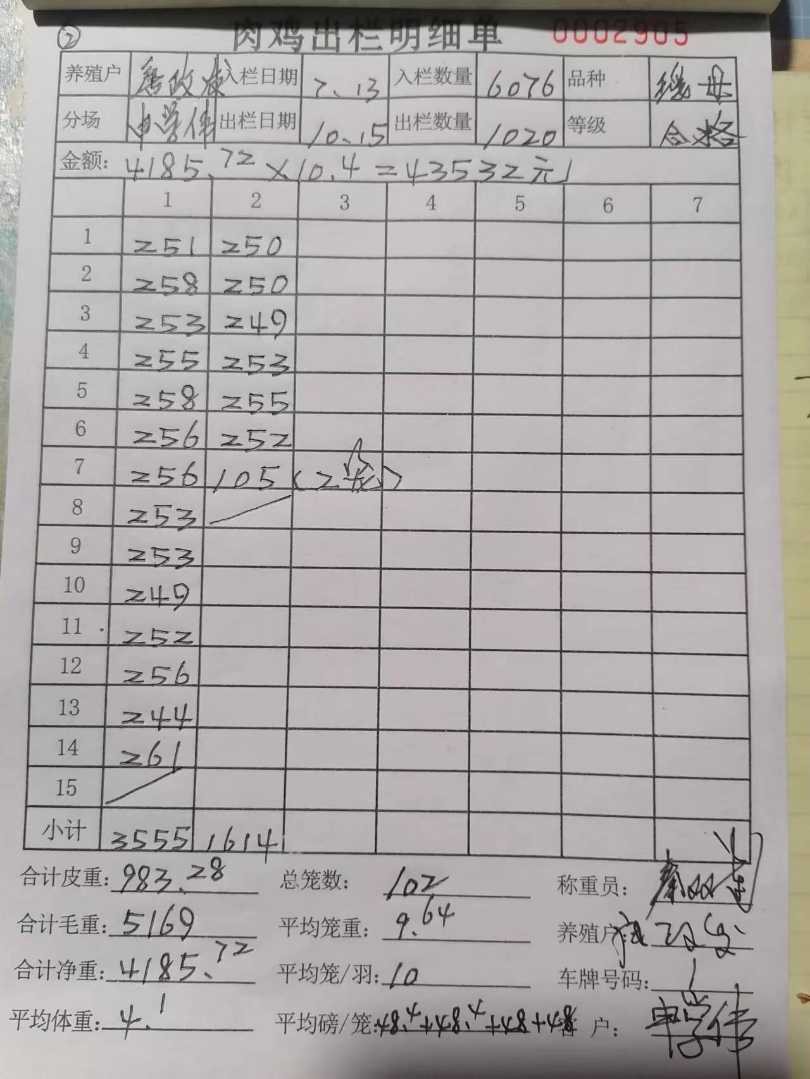 ② 肉鸡出栏明细单 0002905
养殖户 唐政凌 入栏日期 7.13 入栏数量 6076 品种 母
分场 申学伟 出栏日期 10.15 出栏数量 1020 等级 合格
金额: 4185.72×10.4=43532元
1 2 3 4 5 6 7
1 251 250
2 258 250
3 253 249
4 255 253
5 258 255
6 256 252
7 256 105 (2笼)
8 253
9 253
10 249
11 252
12 256
13 244
14 261
15
小计 3555 1614
合计皮重: 983.28 总笼数: 102 称重员:
合计毛重: 5169 平均笼重: 9.64 养殖户:
合计净重: 4185.72 平均笼/羽: 10 车牌号码:
平均体重: 4.1 平均磅/笼: 48.4+48.4+48+48 客户: 申学伟